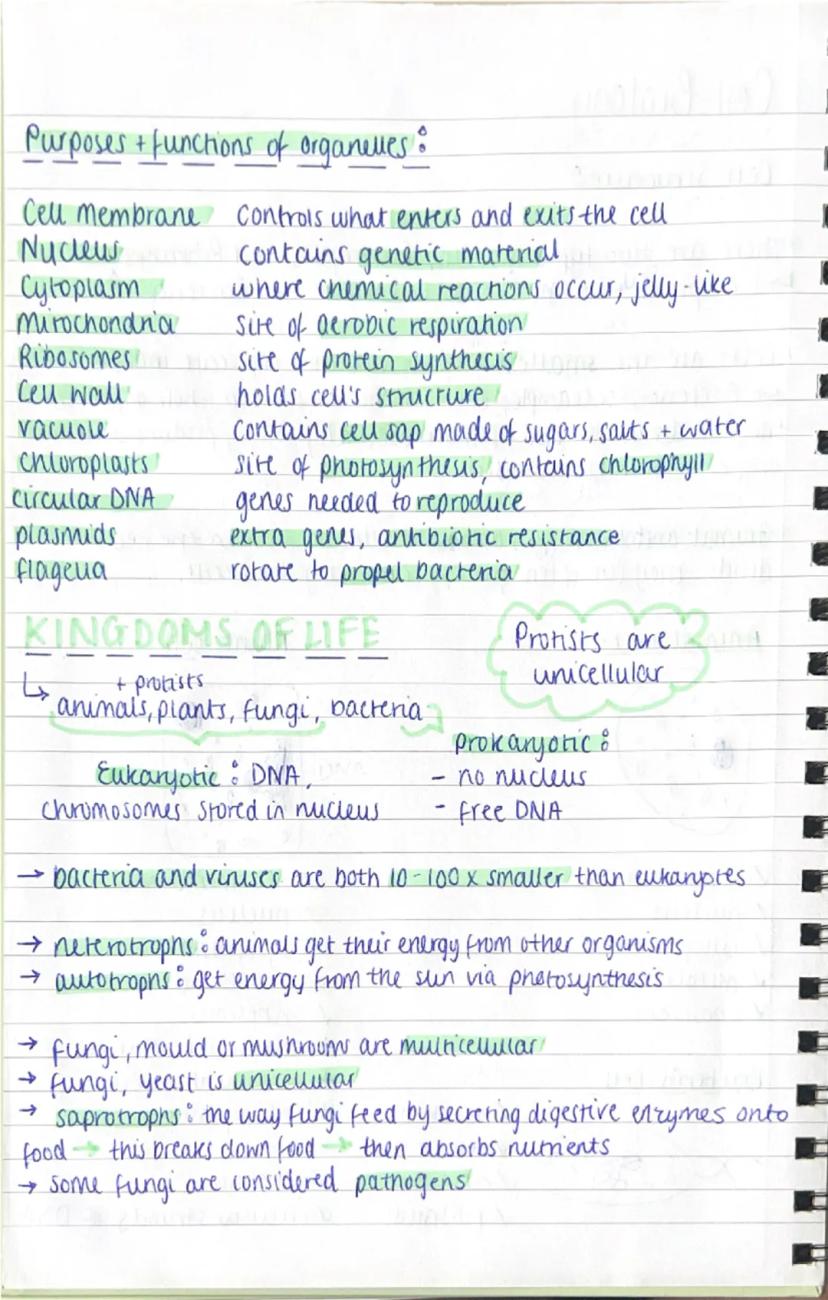 Purposes + functions of organelles:
Cell membrane controls what enters and exits the cell
Nucleus contains genetic material
Cytoplasm where chemical reactions occur, jelly-like
Mitochondria site of aerobic respiration
Ribosomes site of protein synthesis
Cell wall holds cell's structure
vacuole contains cell sap made of sugars, salts + water
Chloroplasts site of photosynthesis, contains chlorophyll
circular DNA genes needed to reproduce
plasmids extra genes, antibiotic resistance
flagella rotate to propel bacteria
KINGDOMS OF LIFE
Protists are
unicellular
+ protists
↳ animals, plants, fungi, bacteria
Prokaryotic:
Eukaryotic: DNA, - no nucleus
chromosomes stored in nucleus - free DNA
→ bacteria and viruses are both 10-100x smaller than eukaryotes
→ heterotrophs: animals get their energy from other organisms
→ autotrophs: get energy from the sun via photosynthesis
→ fungi, mould or mushrooms are multicellular
→ fungi, yeast is unicellular
→ saprotrophs: the way fungi feed by secreting digestive enzymes onto
food → this breaks down food → then absorbs nutrients
→ some fungi are considered pathogens